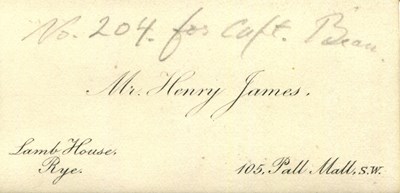 No. 204. for Capt. Bean.
Mr. Henry James.
Lamb House,
Rye.
105, Pall Mall, S.W.